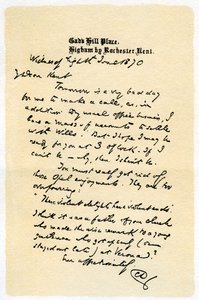 Gad's Hill Place,
Higham by Rochester, Kent.
Wednesday Eighth June 1870
My Dear Kent
Tomorrow is a very bad day
for me to make a call, as, in
addition to my usual office business, I
have a mass of accounts to settle
with Wills. But I hope I may be
ready for you at 3 o'clock. If I
can't be – why, then I shan't be.
You must really get rid of
those Opal enjoyments. They are too
overpowering.
"These violent delights have violent ends."
I think it was a father of your church
who made the wise remark to a young
gentleman who got up early (or
stayed out late) at Verona?
Ever affectionately
CD